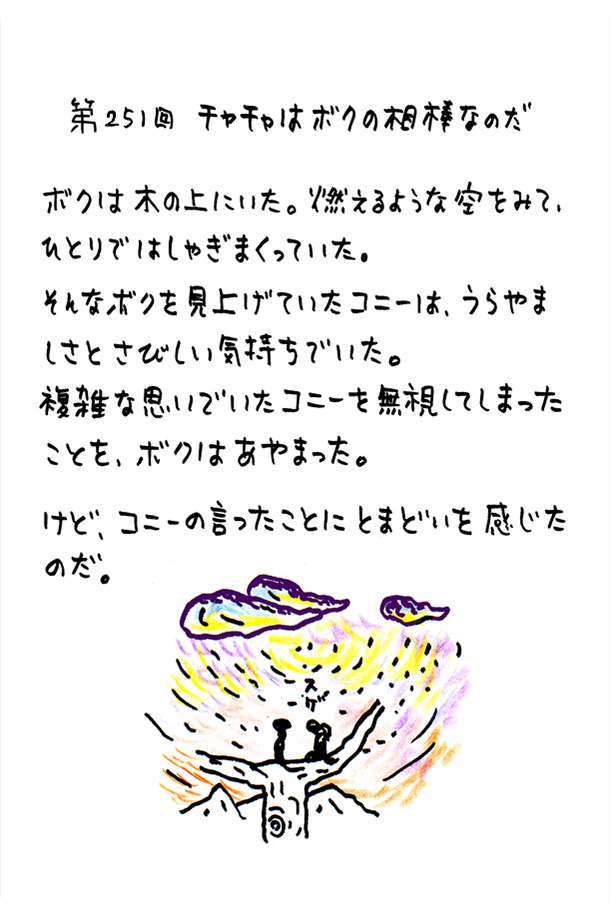 第251回 チャチャはボクの相棒なのだ
ボクは木の上にいた。燃えるような空をみて、
ひとりではしゃぎまくっていた。
そんなボクを見上げていたコニーは、うらやま
しさとさびしい気持ちでいた。
複雑な思いでいたコニーを無視してしまった
ことを、ボクはあやまった。
けど、コニーの言ったことにとまどいを感じた
のだ。
スゲ